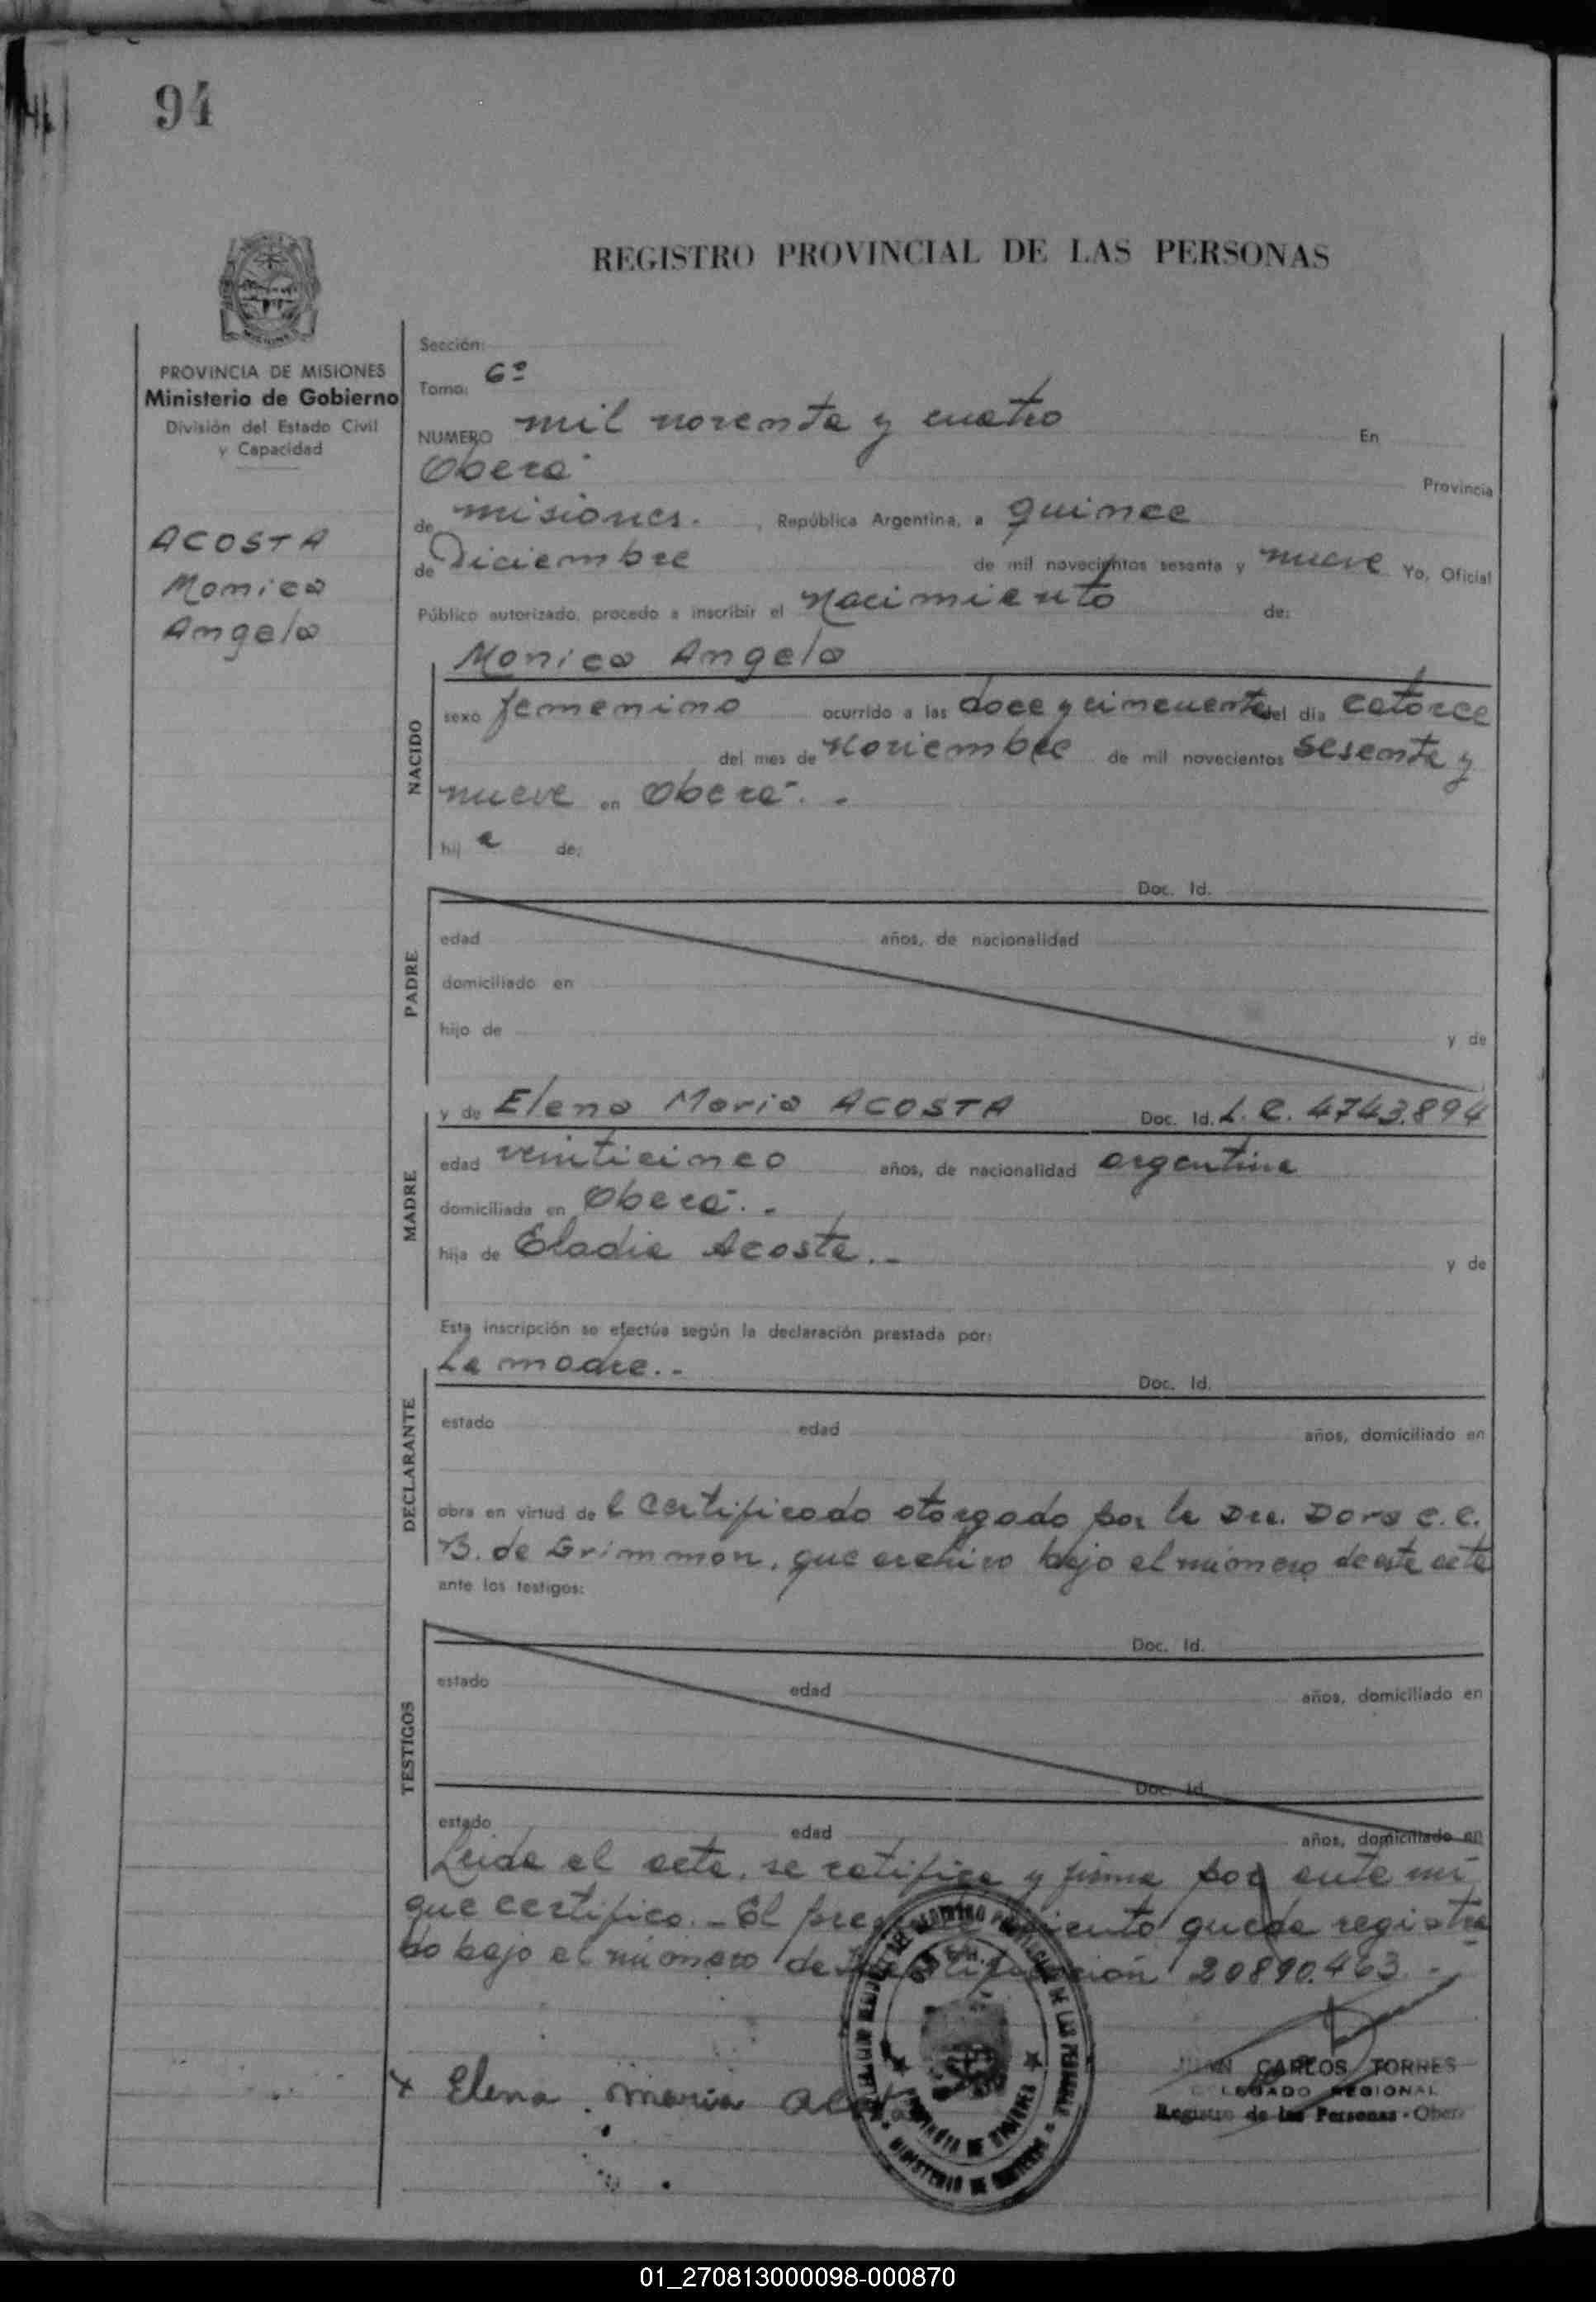 94
REGISTRO PROVINCIAL DE LAS PERSONAS
PROVINCIA DE MISIONES
Ministerio de Gobierno
División del Estado Civil
y Capacidad
ACOSTA
Monica
Angela
Sección:
Tomo: 6º
NUMERO mil noventa y cuatro En
Oberá
Provincia
de misiones. , República Argentina, a quince
de Diciembre de mil novecientos sesenta y nueve Yo, Oficial
Público autorizado, procedo a inscribir el nacimiento de:
NACIDO
Monica Angela
sexo femenino ocurrido a las doce y cincuenta del día catorce
del mes de Noviembre de mil novecientos sesenta y
nueve en Oberá. -
hij a de:
PADRE
Doc. Id.
edad años, de nacionalidad
domiciliado en
hijo de y de
MADRE
y de Elena Maria ACOSTA Doc. Id. L. C. 4743.894
edad veinticinco años, de nacionalidad argentina
domiciliada en Oberá. -
hija de Eladia Acosta. - y de
Esta inscripción se efectúa según la declaración prestada por:
DECLARANTE
La madre. - Doc. Id.
estado edad años, domiciliado en
obra en virtud de l certificado otorgado por la Dra. Dora C. C.
B. de Grimmon, que archivo bajo el número de este acta
ante los testigos:
TESTIGOS
Doc. Id.
estado edad años, domiciliado en
Doc. Id.
estado edad años, domiciliado en
Leida el acta, se ratifica y firma por ante mí
que certifico. - El queda registra
do bajo el número de 20890.463 -
x Elena maria
JUAN CARLOS TORRES
DELEGADO REGIONAL
Registro de las Personas - Oberá
MINISTERIO DE GOBIERNO
PROVINCIA DE MISIONES
01_270813000098-000870